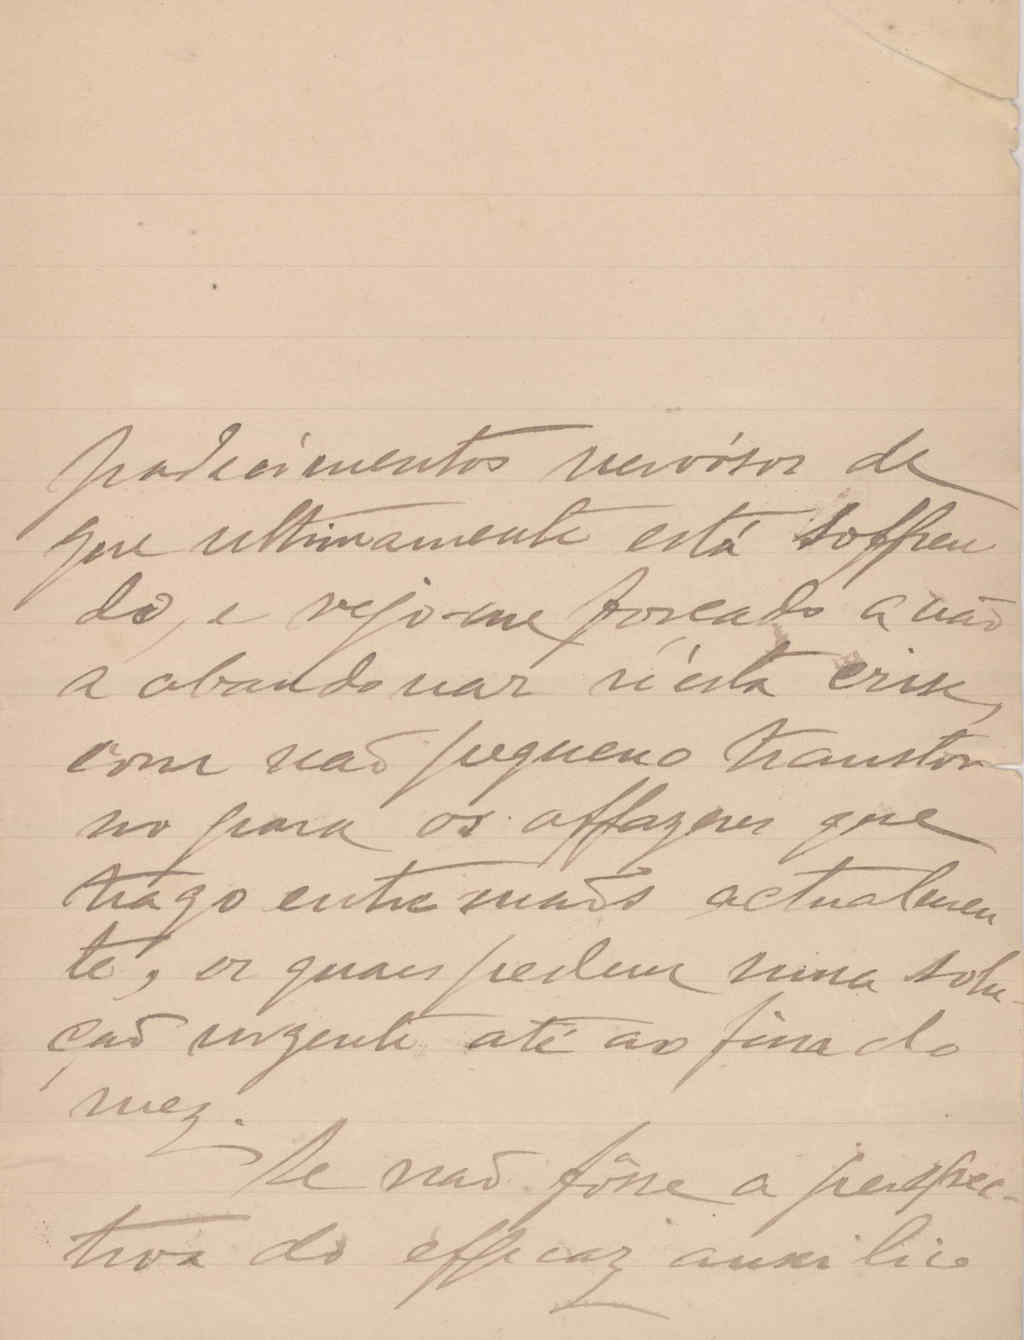 padecimentos nervósos de
que ultimamente está soffren
do, e vejo-me forcado a não
a abandonar n'esta crise,
com não pequeno transtor
no para os affazeres que
trago entre maõs actualmen
te, os quaes pedem uma solu-
çaõ urgente até ao fim do
mez.
Se naõ fôsse a perspec-
tiva do efficaz auxilio